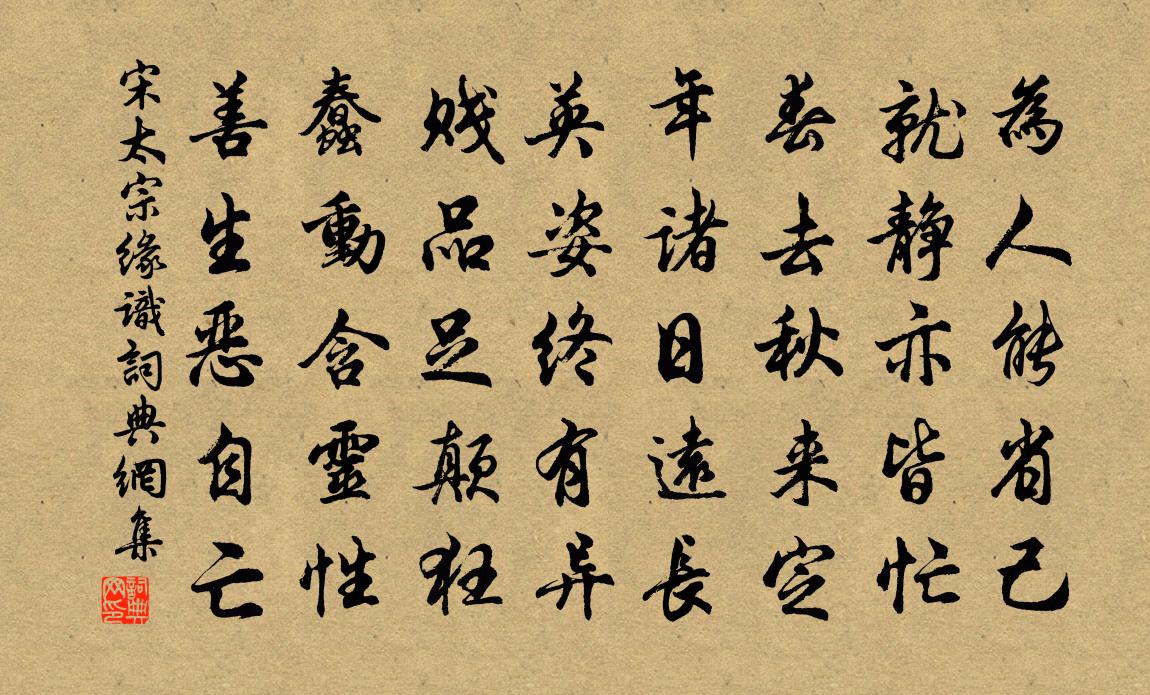 為人能省己
就靜亦皆忙
春去秋来定
年諸日遠長
英姿終有异
贱品足颠狂
蠢動含靈性
善生惡自亡
宋太宗緣識詞典網集
詞典网印